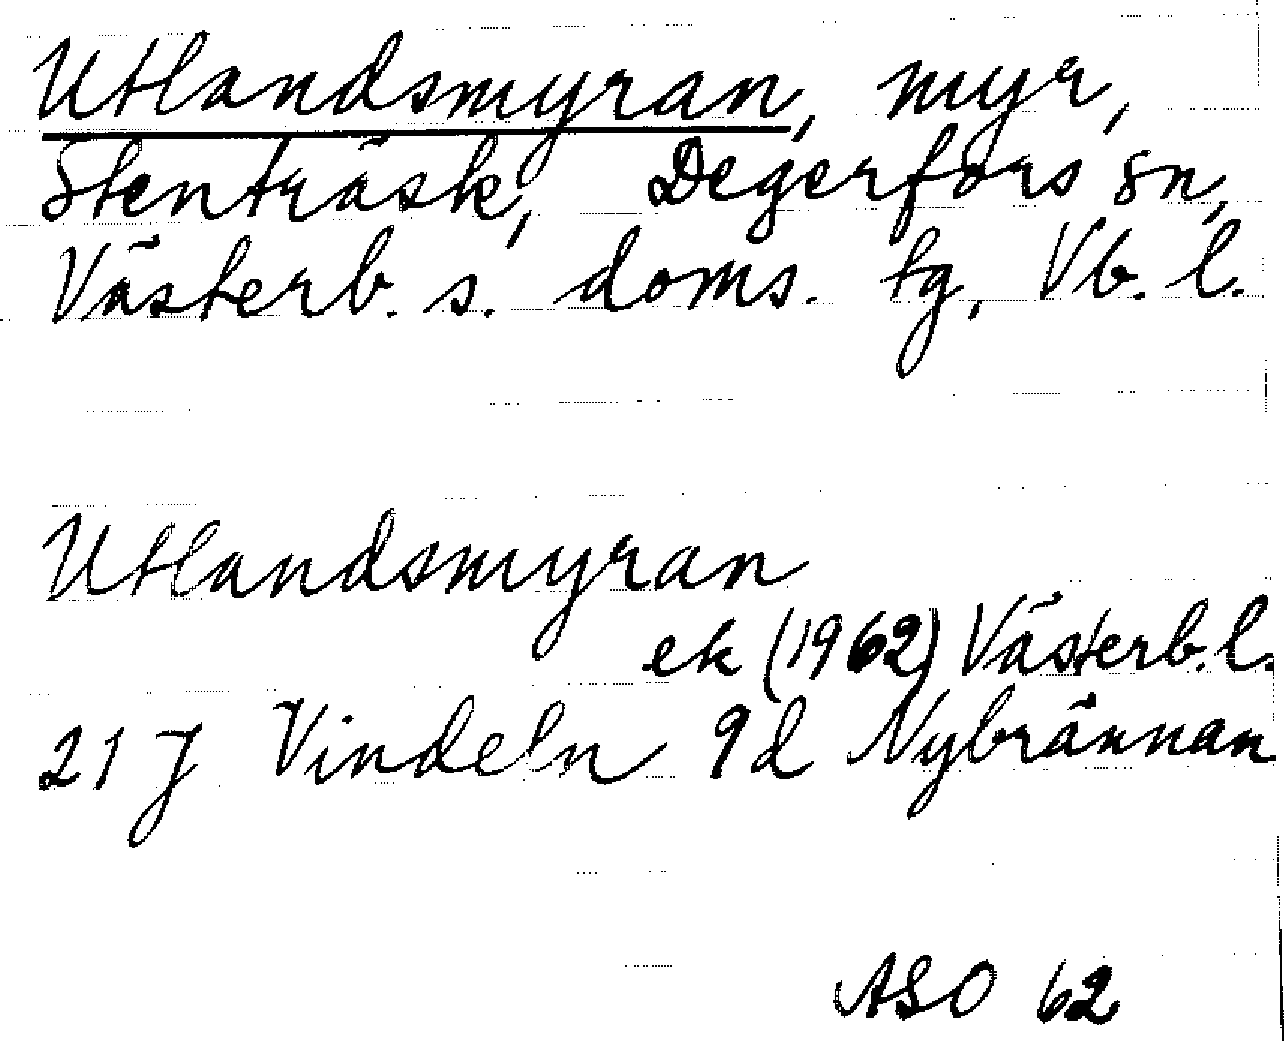 Utlandsmyran, myr,
Stenträsk, Degerfors sn,
Västerb. s. doms. tg, Vb. l.
Utlandsmyran
ek (1962) Västerb. l.
21 J Vindeln 9d Nybrännan
ASO 62